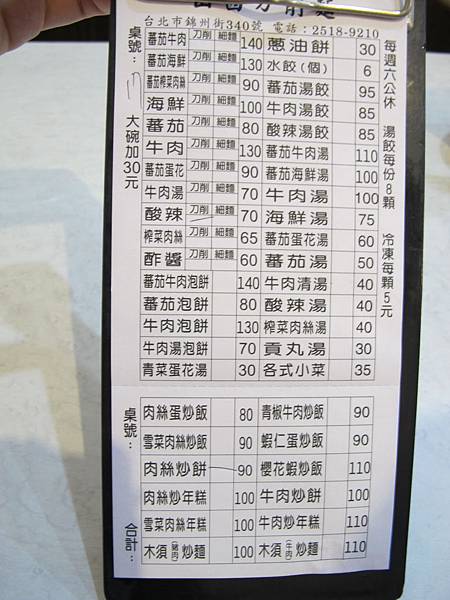 台北市錦州街340號 電話：2518-9210
桌號：
大碗加30元
番茄牛肉 刀削 細麵 140 蔥油餅 30
番茄海鮮 刀削 細麵 130 水餃(個) 6
番茄榨菜肉絲 刀削 細麵 90 蕃茄湯餃 95
海鮮 刀削 細麵 100 牛肉湯餃 85
蕃茄 刀削 細麵 80 酸辣湯餃 85
牛肉 刀削 細麵 130 蕃茄牛肉湯 110
蕃茄蛋花 刀削 細麵 90 蕃茄海鮮湯 100
牛肉湯 刀削 細麵 70 牛肉湯 100
酸辣 刀削 細麵 70 海鮮湯 75
榨菜肉絲 刀削 細麵 65 蕃茄蛋花湯 60
酢醬 刀削 細麵 60 蕃茄湯 50
蕃茄牛肉泡餅 140 牛肉清湯 40
蕃茄泡餅 80 酸辣湯 40
牛肉泡餅 130 榨菜肉絲湯 40
牛肉湯泡餅 70 貢丸湯 30
青菜蛋花湯 30 各式小菜 35
每週六公休 湯餃每份8顆 冷凍每顆5元
桌號：
肉絲蛋炒飯 80 青椒牛肉炒飯 90
雪菜肉絲炒飯 90 蝦仁蛋炒飯 90
肉絲炒餅 90 櫻花蝦炒飯 110
肉絲炒年糕 100 牛肉炒餅 100
雪菜肉絲年糕 100 牛肉炒年糕 110
木須(豬肉)炒麵 100 木須(牛肉)炒麵 110
合計：